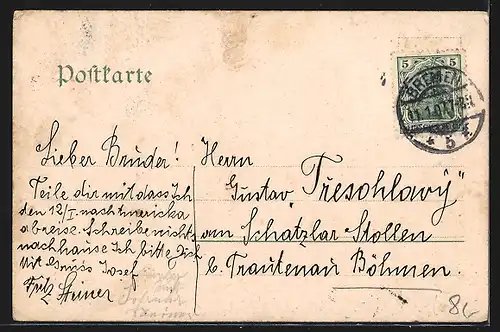 Postkarte
5 5
BREMEN
11.1.07.
* 5 *
Lieber Bruder!
Teile dir mit dass Ich
den 12/I. nach Amerika
abreise. Schreibe nichts
nachhause Ich bitte Dich
Mit Gruss Josef
Fritz
Steiner
Herrn
Gustav „Treschlavý"
am Schatzlar Stollen
b. Trautenau Böhmen.